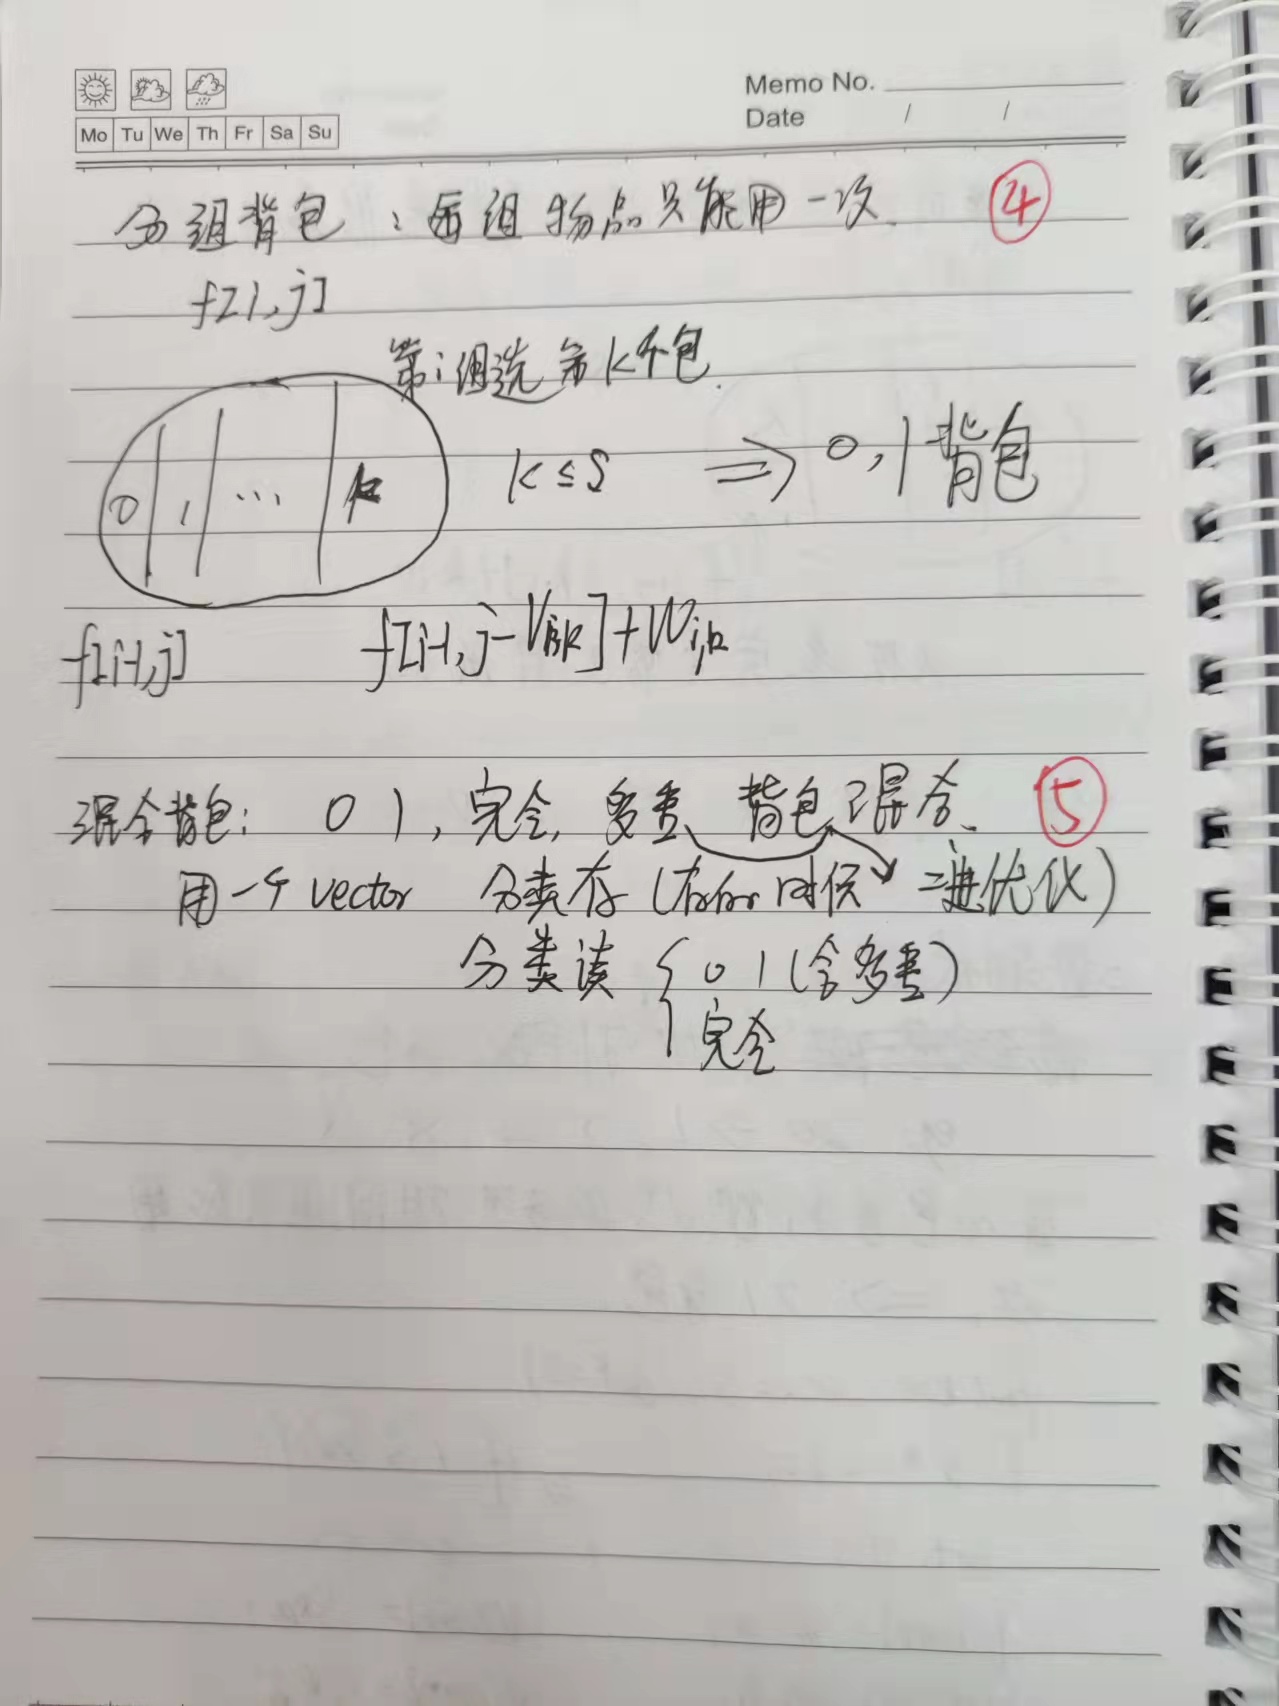 Memo No.
Date / /
Mo Tu We Th Fr Sa Su
分组背包：每组物品只能用一次. ④
f[i,j]
第i组选第k个包.
0 1 ... k
k≤S ⇒ 0,1背包
f[i-1,j] f[i-1,j-Vi,k]+Wi,k
混合背包: 0 1, 完全, 多重 背包混合. ⑤
用一个vector 分类存(存的时候 二进优化)
分类读 { 0 1 (含多重)
完全